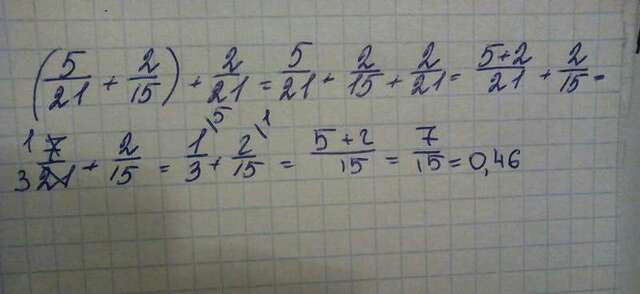 (5/21 + 2/15) + 2/21 = 5/21 + 2/15 + 2/21 = (5+2)/21 + 2/15 =
1 7/21 3 + 2/15 = 1/3 \5 + 2/15 \1 = (5+2)/15 = 7/15 = 0,46